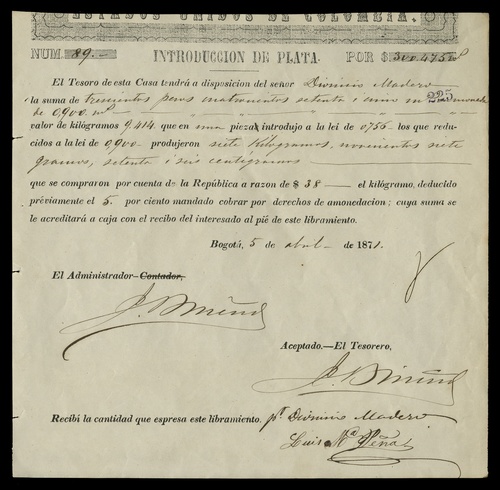 ESTADOS UNIDOS DE COLOMBIA.
NUM. 89.— INTRODUCCION DE PLATA. POR $ 300.475
El Tesoro de esta Casa tendrá a disposicion del señor Dionisio Madero
la suma de trescientos pesos cuatrocientos setenta i cinco m 225 moneda
de 0,900 m
valor de kilógramos 9,414 que en una pieza introdujo a la lei de 0755 los que redu-
cidos a la lei de 0,900 produjeron siete kilógramos, novecientos siete
gramos, setenta i seis centígramos
que se compraron por cuenta de la República a razon de $ 38— el kilógramo, deducido
préviamente el 5. por ciento mandado cobrar por derechos de amonedacion; cuya suma se
le acreditará a caja con el recibo del interesado al pié de este libramiento.
Bogotá, 5 de abril de 1871.
El Administrador-Contador,
Aceptado.—El Tesorero,
Recibí la cantidad que espresa este libramiento. pr. Dionisio Madero
Luis Ma. Peña